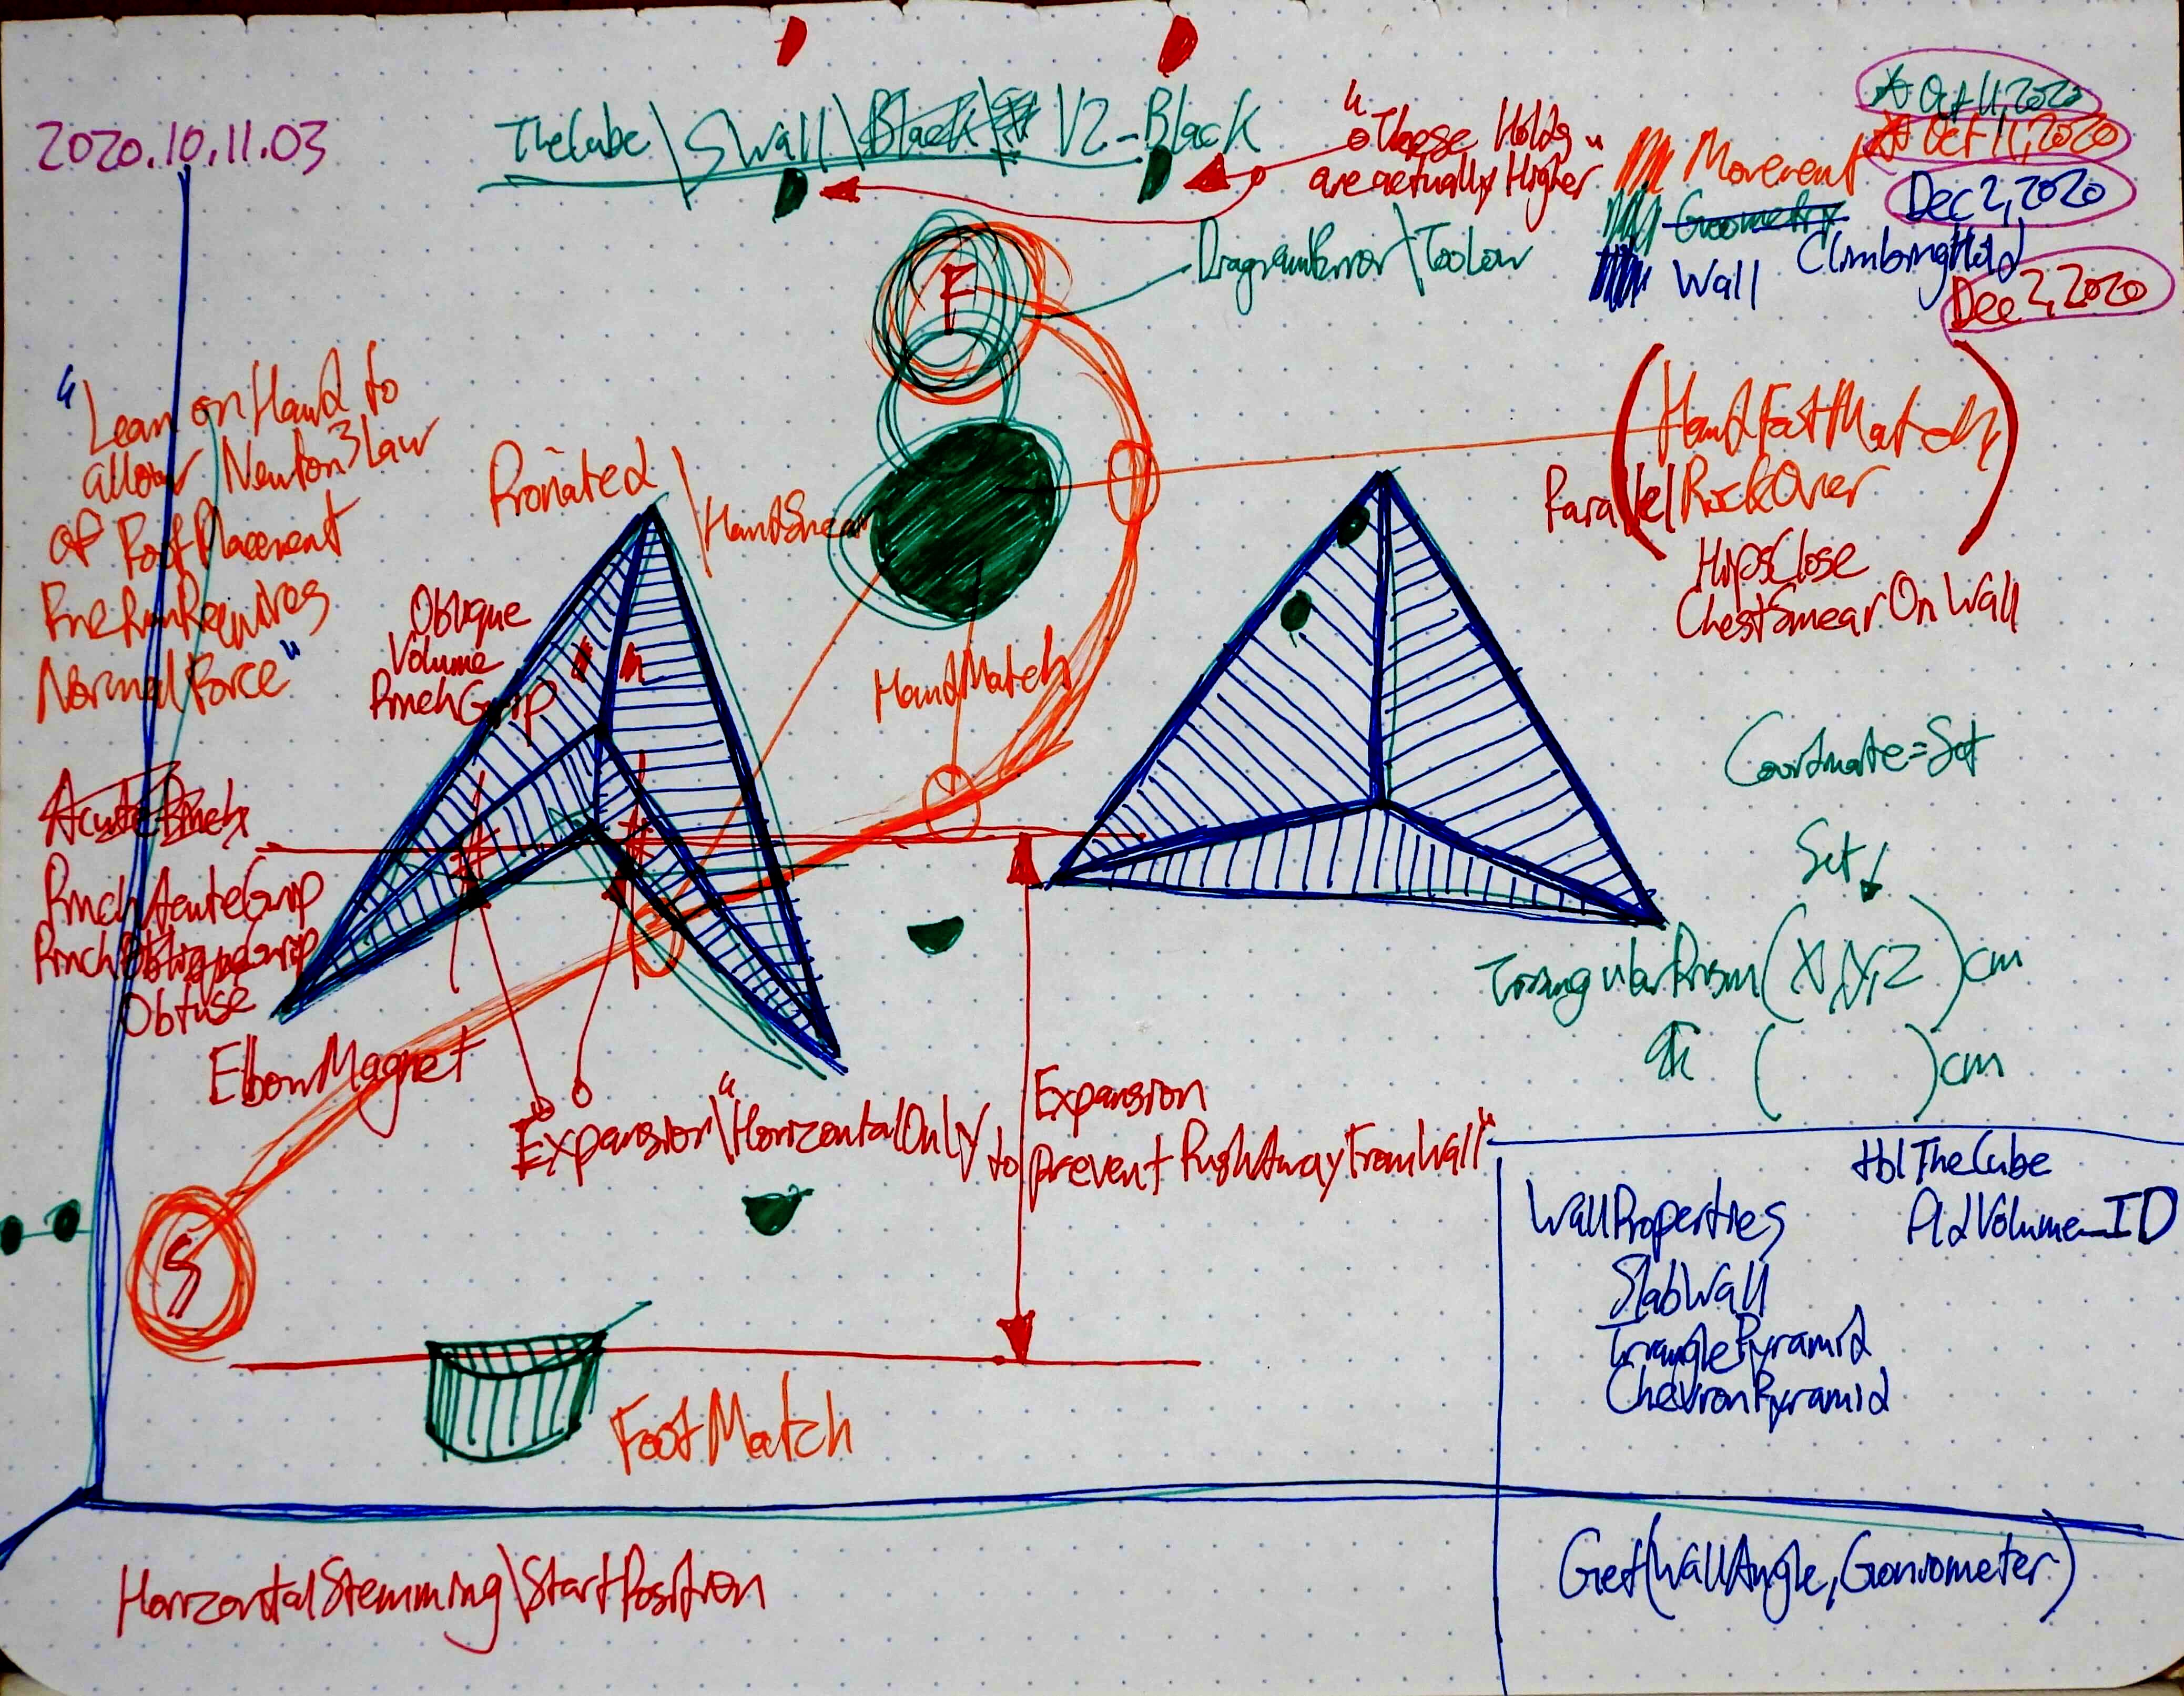 2020.10.11.03
TheCube\SWall\Black\ V2-Black
"These Holds"
are actually Higher
Oct 11, 2020
Oct 11, 2020
Dec 2, 2020
Dec 2, 2020
Movement
Geometry
ClimbingHold
Wall
DiagramError\TooLow
F
"Lean on Hand to
allow Newton3Law
of FootPlacement
Requires
NormalForce"
Pronated
\HandSmear
Oblique
Volume
PinchGrip
HandMatch
(HandFootMatch)
Parallel RockOver
HipsClose
ChestSmearOnWall
AcutePinch
PinchAcuteGrip
PinchObliqueGrip
Obtuse
ElbowMagnet
Coordinate=Set
Set
TriangularPrism(X,Y,Z)cm
( )cm
Expansion\"HorizontalOnly
to prevent PushAwayFromWall"
Expansion
S
FootMatch
tblTheCube
WallProperties
SlabWall
TrianglePyramid
ChevronPyramid
HorizontalStemming\StartPosition
Get(WallAngle,Goniometer)